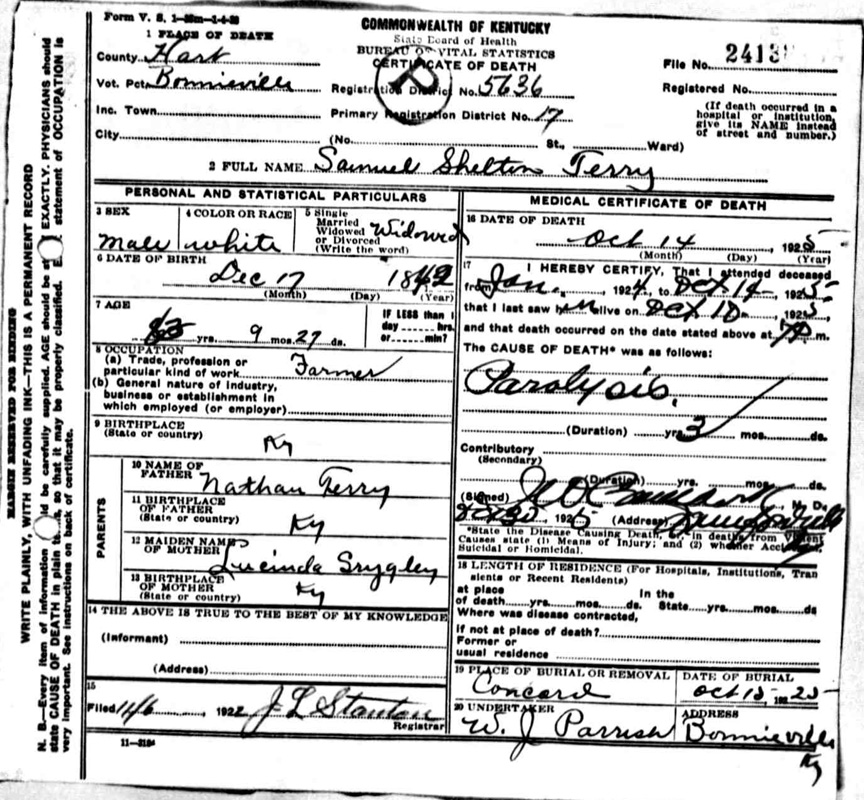 Form V. S. 1
COMMONWEALTH OF KENTUCKY
State Board of Health
BUREAU OF VITAL STATISTICS
CERTIFICATE OF DEATH
P
1 PLACE OF DEATH
County Hart
Vot. Pct. Bonnieville
Inc. Town
City
Registration District No. 5636
Primary Registration District No. 17
(No. St., Ward)
File No. 2413
Registered No.
(If death occurred in a
hospital or institution,
give its NAME instead
of street and number.)
2 FULL NAME Samuel Shelton Terry
PERSONAL AND STATISTICAL PARTICULARS
3 SEX
male
4 COLOR OR RACE
white
5 Single
Married
Widowed
or Divorced
(Write the word)
Widowed
6 DATE OF BIRTH
Dec 17 1842
(Month) (Day) (Year)
7 AGE
yrs. 9 mos. 27 ds.
IF LESS than 1
day hrs.
or min?
8 OCCUPATION
(a) Trade, profession or
particular kind of work Farmer
(b) General nature of industry,
business or establishment in
which employed (or employer)
9 BIRTHPLACE
(State or country)
Ky
PARENTS
10 NAME OF
FATHER Nathan Terry
11 BIRTHPLACE
OF FATHER
(State or country) Ky
12 MAIDEN NAME
OF MOTHER Lucinda Srygley
13 BIRTHPLACE
OF MOTHER
(State or country) Ky
14 THE ABOVE IS TRUE TO THE BEST OF MY KNOWLEDGE
(Informant)
(Address)
15
Filed 11/6, 1922 J L Stanton
Registrar
11-3184
MEDICAL CERTIFICATE OF DEATH
16 DATE OF DEATH
Oct 14 1925
(Month) (Day) (Year)
17 I HEREBY CERTIFY, That I attended deceased
from Jan., 1924, to Oct 14, 1925,
that I last saw him alive on Oct 10, 1925,
and that death occurred on the date stated above at m.
The CAUSE OF DEATH* was as follows:
Paralysis.
(Duration) yrs. 3 mos. ds.
Contributory
(Secondary)
(Duration) yrs. mos. ds.
(Signed) M. D.
1925 (Address) Bonnieville
*State the Disease Causing Death, or, in deaths from Violent
Causes state (1) Means of Injury; and (2) whether Accidental,
Suicidal or Homicidal.
18 LENGTH OF RESIDENCE (For Hospitals, Institutions, Tran
sients or Recent Residents)
at place In the
of death yrs. mos. ds. State yrs. mos. ds
Where was disease contracted,
if not at place of death?
Former or
usual residence
19 PLACE OF BURIAL OR REMOVAL
Concord
DATE OF BURIAL
Oct 15 1925
20 UNDERTAKER
W. J Parrish
ADDRESS
Bonnieville
Ky
MARGIN RESERVED FOR BINDING
WRITE PLAINLY, WITH UNFADING INK—THIS IS A PERMANENT RECORD
N. B.—Every item of information should be carefully supplied. AGE should be stated EXACTLY. PHYSICIANS should
state CAUSE OF DEATH in plain terms, so that it may be properly classified. Exact statement of OCCUPATION is
very important. See instructions on back of certificate.